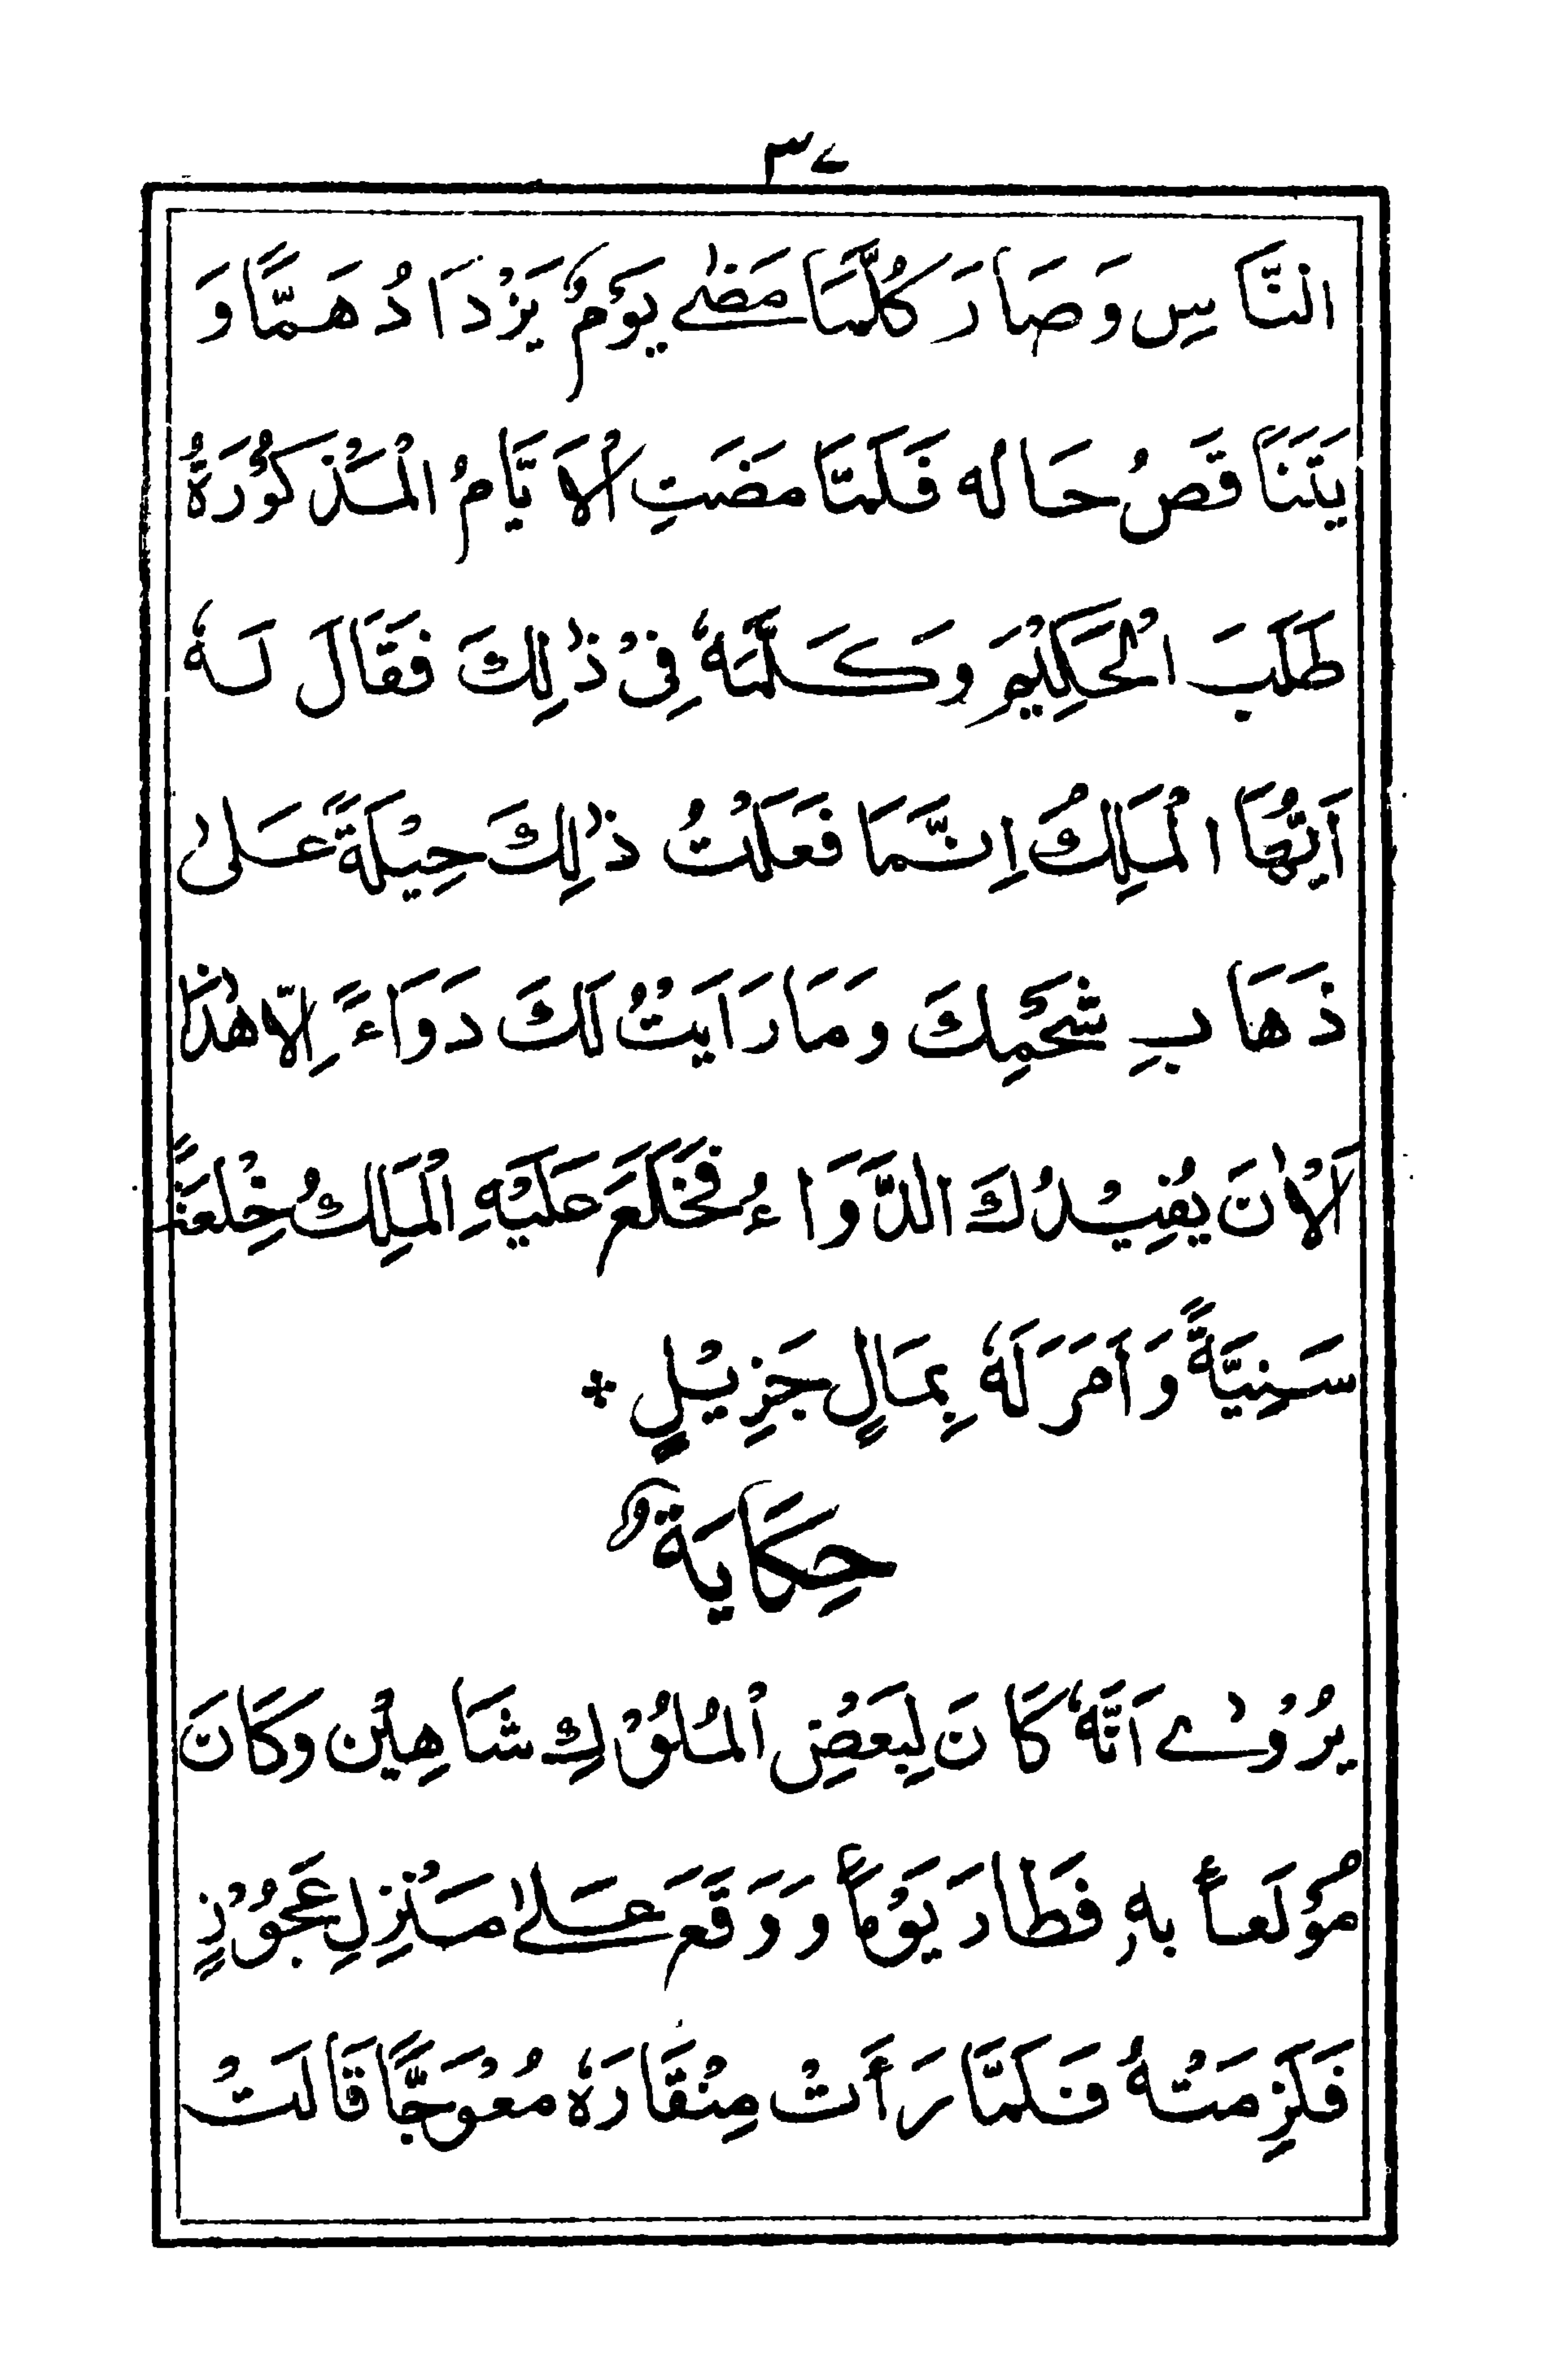 ٣٧
النَّاسِ وَصَارَ كُلَّمَا مَضٰى يَوْمٌ يَزْدَادُ هَمًّا وَ
يَتَنَاقَصُ حَاله فَلَمَّا مضَتِ الْاَيَّامُ الْمَذْكُوْرَةُ
طَلَبَ الْحَكِيْمَ وَكَلَّمَهٗ فِىْ ذٰلِكَ فَقَالَ لَهٗ
اَيُّهَا الْمَلِكُ اِنَّمَا فَعَلْتُ ذٰلِكَ حِيْلَةً عَلىٰ
ذَهَابِ شَحْمِكَ وَمَا رَاَيْتُ لَكَ دَوَاءً اِلَّا هٰذَا
اَلْاٰنَ يُفِيْدُكَ الدَّوَاءُ فَخَلَعَ عَلَيْهِ الْمَلِكُ خِلْعَةً
سَنِيَّةً وَاَمَرَ لَهٗ بِمَالٍ جَزِيْلٍ ❖
حِكَايَةٌ
يُرْوٰے اَنَّهٗ كَانَ لِبَعْضِ الْمُلُوْكِ شَاهِيْن وَكَانَ
مُوْلَعاً بِهٖ فَطَارَ يَوْماً وَوَقَعَ عَلىٰ مَنْزِلِ عَجُوْزٍ
فَلَزِمَتْهُ فَلَمَّا رَأَتْ مِنْقَارَهٗ مُعْوَجًّا قَالَتْ